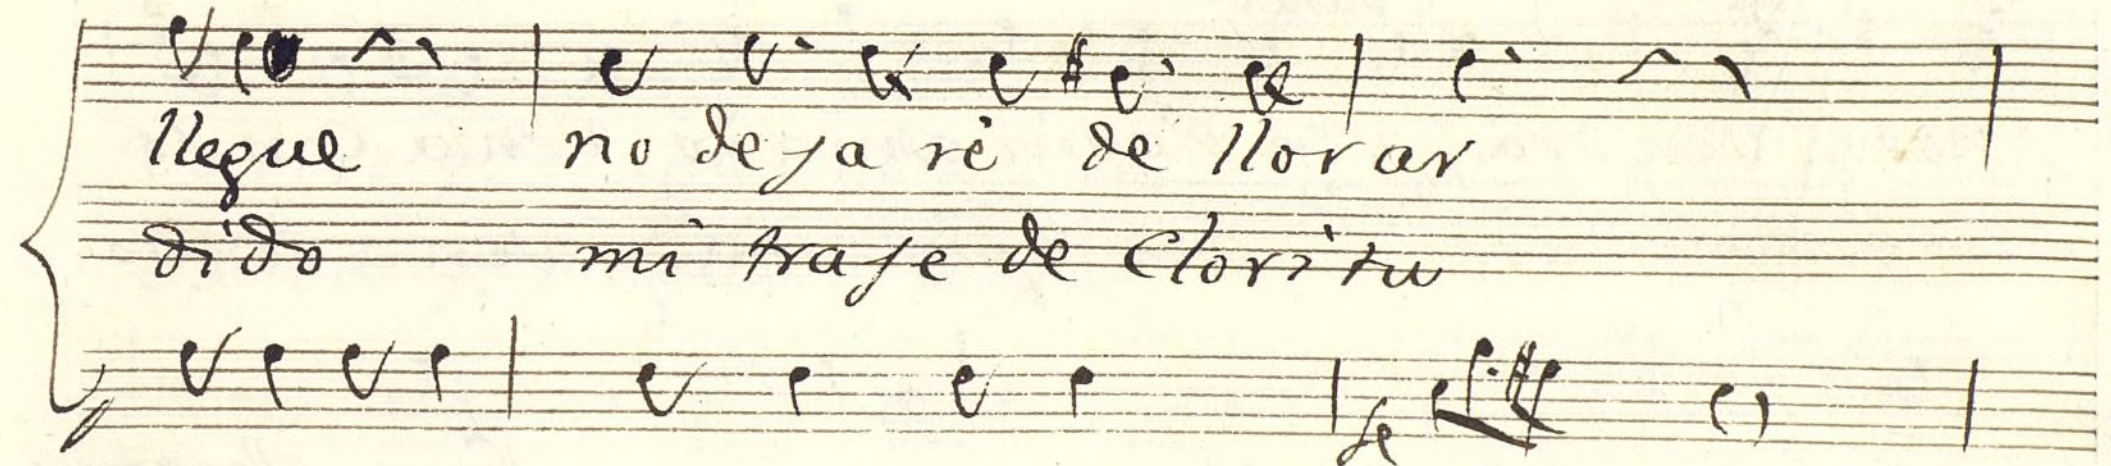 llegue no dejaré de llorar
dido mi traje de Cloritu
fe